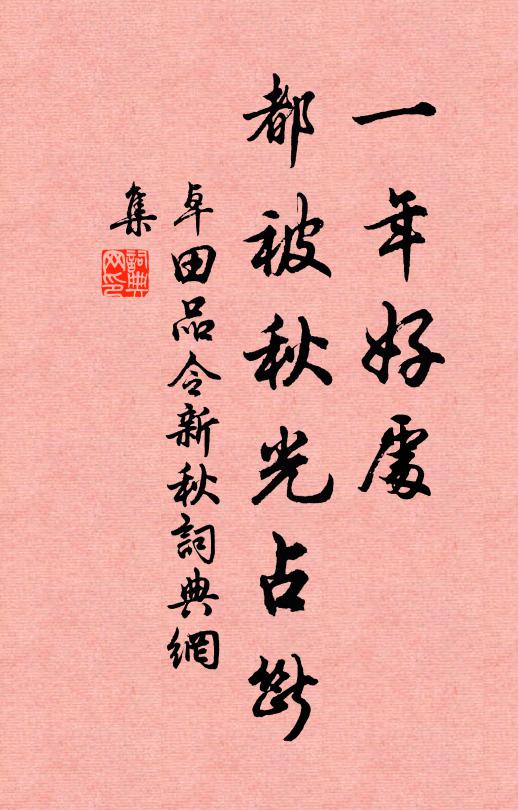 一年好處
都被秋光占斷
卓田品令新秋詞典網
集
詞典網印